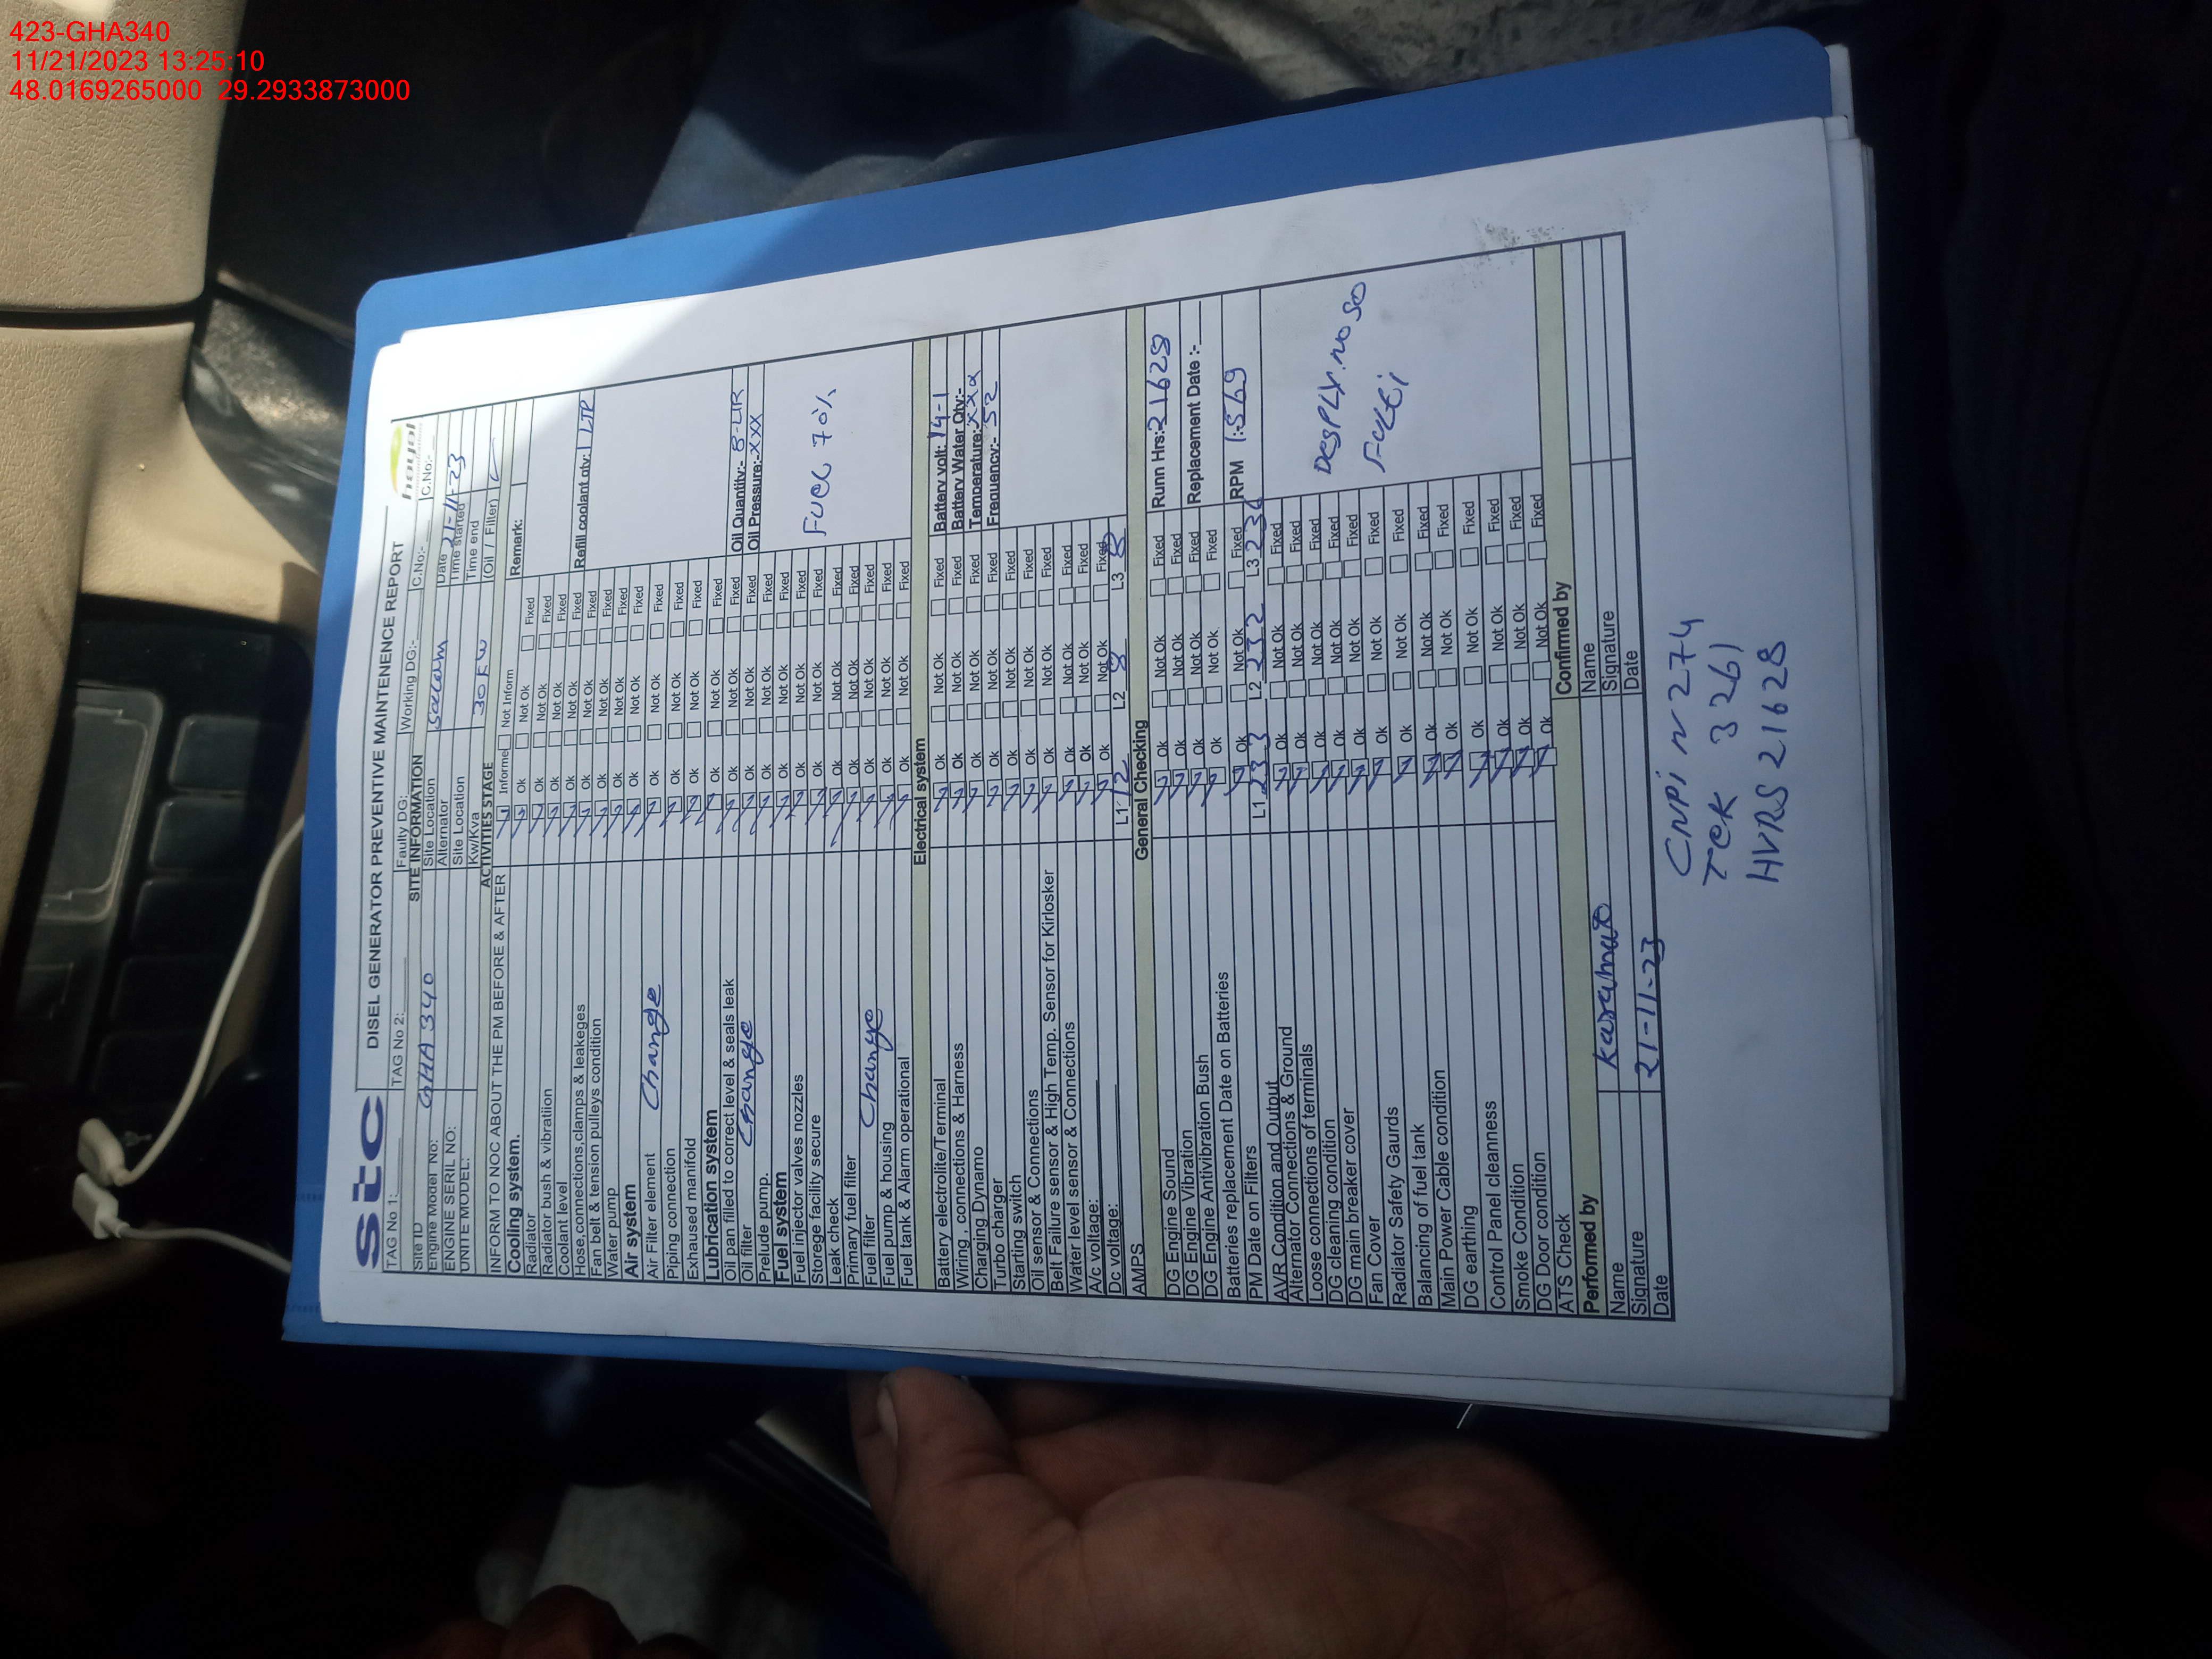 423-GHA340
11/21/2023 13:25:10
48.0169265000 29.2933873000
stc
DISEL GENERATOR PREVENTIVE MAINTENENCE REPORT
TAG No 1: TAG No 2: Faulty DG: Working DG:- C.No:- C.No:-
SITE INFORMATION
Site ID GHA 340 Site Location Salam Date 21-11-23
Engine Model No: Alternator Time started
ENGINE SERIL NO: Site Location Time end
UNITE MODEL: Kw/Kva 30KW (Oil / Filter)
ACTIVITIES STAGE
INFORM TO NOC ABOUT THE PM BEFORE & AFTER Informe Not Inform Remark:
Cooling system. Ok Not Ok Fixed
Radiator Ok Not Ok Fixed
Radiator bush & vibratiion Ok Not Ok Fixed
Coolant level Ok Not Ok Fixed Refill coolant qty: 1 LTR
Hose,connections,clamps & leakeges Ok Not Ok Fixed
Fan belt & tension pulleys condition Ok Not Ok Fixed
Water pump Ok Not Ok Fixed
Air system Ok Not Ok Fixed
Air Filter element Change Ok Not Ok Fixed
Piping connection Ok Not Ok Fixed
Exhaused manifold Ok Not Ok Fixed
Lubrication system Ok Not Ok Fixed
Oil pan filled to correct level & seals leak Ok Not Ok Fixed Oil Quantity:- 8-LTR
Oil filter Change Ok Not Ok Fixed Oil Pressure:-XXX
Prelude pump. Ok Not Ok Fixed
Fuel system Ok Not Ok Fixed
Fuel injector valves nozzles Ok Not Ok Fixed
Storege facility secure Ok Not Ok Fixed FUEL 70%
Leak check Ok Not Ok Fixed
Primary fuel filter Ok Not Ok Fixed
Fuel filter Change Ok Not Ok Fixed
Fuel pump & housing Ok Not Ok Fixed
Fuel tank & Alarm operational Ok Not Ok Fixed
Electrical system
Battery electrolite/Terminal Ok Not Ok Fixed Battery volt: 14-1
Wiring , connections & Harness Ok Not Ok Fixed Battery Water Qty:-
Charging Dynamo Ok Not Ok Fixed Temperature:-XXX
Turbo charger Ok Not Ok Fixed Frequency:- 52
Starting switch Ok Not Ok Fixed
Oil sensor & Connections Ok Not Ok Fixed
Belt Failure sensor & High Temp. Sensor for Kirlosker Ok Not Ok Fixed
Water level sensor & Connections Ok Not Ok Fixed
A/c voltage: Ok Not Ok Fixed
Dc voltage: Ok Not Ok Fixed
AMPS L1 12 L2 8 L3 8
General Checking
DG Engine Sound Ok Not Ok Fixed Runn Hrs:21628
DG Engine Vibration Ok Not Ok Fixed
DG Engine Antivibration Bush Ok Not Ok Fixed Replacement Date :-
Batteries replacement Date on Batteries Ok Not Ok Fixed
PM Date on Filters Ok Not Ok Fixed RPM 1569
AVR Condition and Output L1 233 L2 232 L3 236
Alternator Connections & Ground Ok Not Ok Fixed
Loose connections of terminals Ok Not Ok Fixed
DG cleaning condition Ok Not Ok Fixed
DG main breaker cover Ok Not Ok Fixed
Fan Cover Ok Not Ok Fixed
Radiator Safety Gaurds Ok Not Ok Fixed
Balancing of fuel tank Ok Not Ok Fixed
Main Power Cable condition Ok Not Ok Fixed
DG earthing Ok Not Ok Fixed
Control Panel cleanness Ok Not Ok Fixed
Smoke Condition Ok Not Ok Fixed
DG Door condition Ok Not Ok Fixed
ATS Check Ok Not Ok Fixed
Performed by Confirmed by
Name Name
Signature Signature
Date 21-11-23 Date
TCK 3261
HVRS 21628